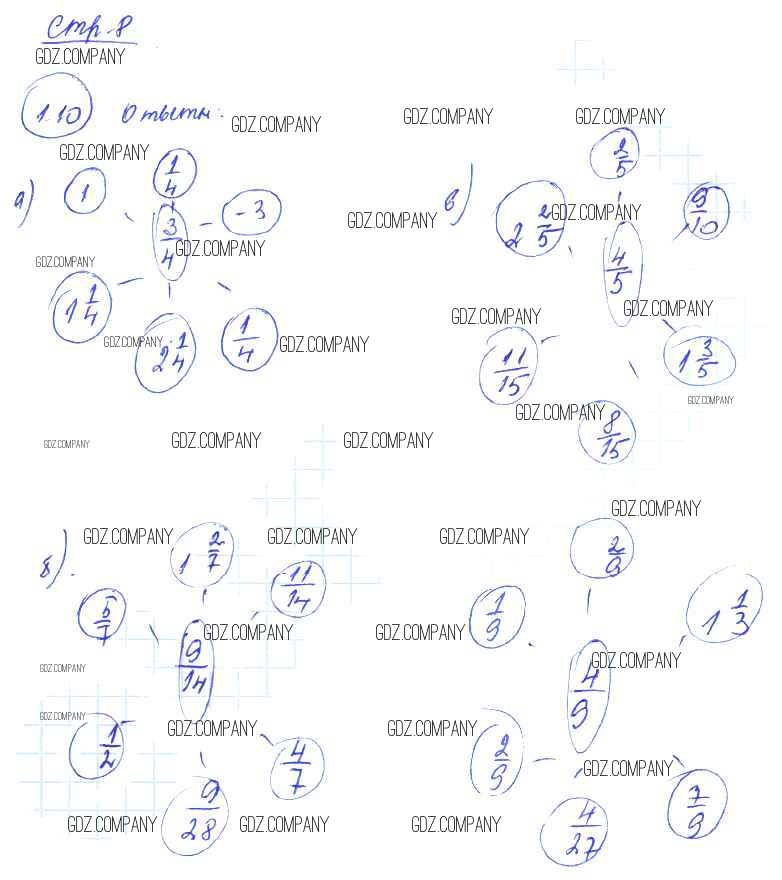 Стр. 8
GDZ.COMPANY
1.10 Ответы:
GDZ.COMPANY GDZ.COMPANY GDZ.COMPANY
GDZ.COMPANY
а) 1 1/4 -3
3/4
GDZ.COMPANY
GDZ.COMPANY
1 1/4 2 1/4 1/4
GDZ.COMPANY GDZ.COMPANY
в) 2 2/5 2/5 9/10
GDZ.COMPANY GDZ.COMPANY
4/5
GDZ.COMPANY GDZ.COMPANY
11/15 8/15 1 3/5
GDZ.COMPANY GDZ.COMPANY
GDZ.COMPANY GDZ.COMPANY GDZ.COMPANY
б) 5/7 1 2/7 11/14
GDZ.COMPANY GDZ.COMPANY
9/14
GDZ.COMPANY
GDZ.COMPANY
GDZ.COMPANY
1/2 9/28 4/7
GDZ.COMPANY
GDZ.COMPANY GDZ.COMPANY
GDZ.COMPANY
GDZ.COMPANY
1/9 2/9 1 1/3
GDZ.COMPANY
4/9
GDZ.COMPANY
GDZ.COMPANY
2/9 4/27 7/9
GDZ.COMPANY
GDZ.COMPANY